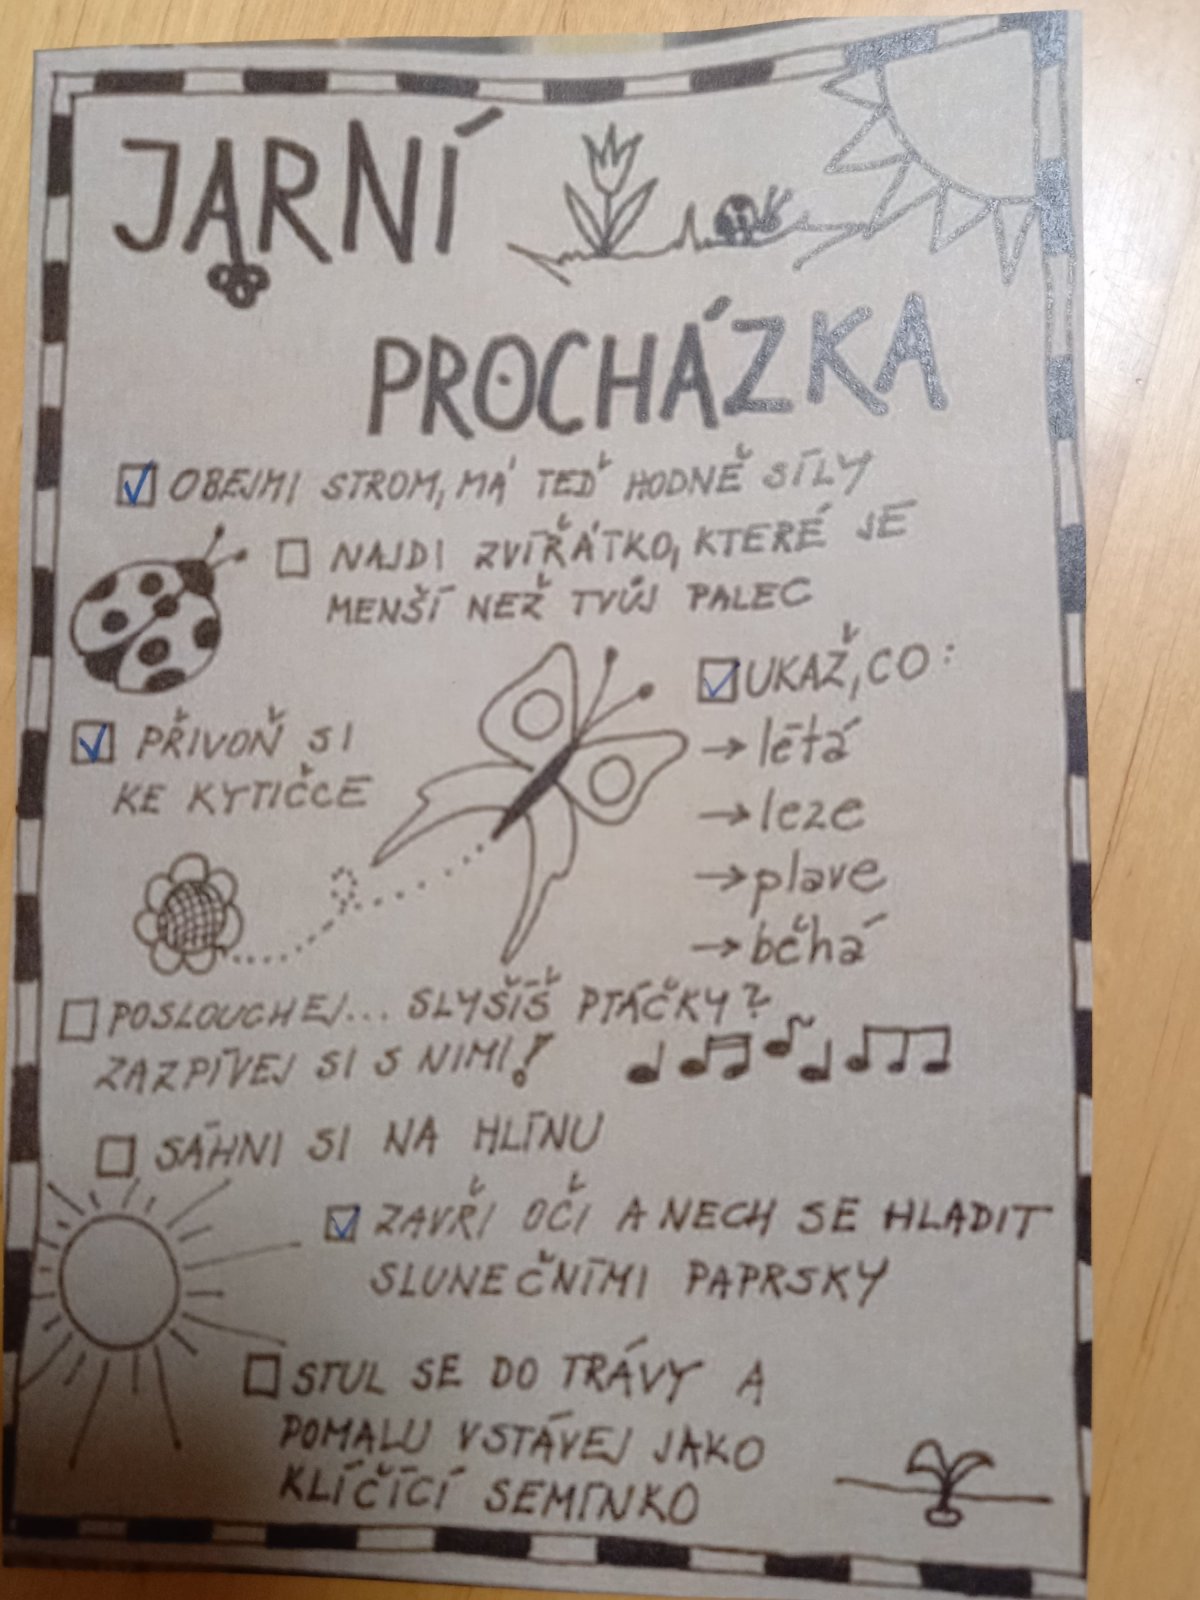 JARNÍ
PROCHÁZKA
☑ OBEJMI STROM, MÁ TEĎ HODNĚ SÍLY
☐ NAJDI ZVÍŘÁTKO, KTERÉ JE
MENŠÍ NEŽ TVŮJ PALEC
☑ UKAŽ, CO:
→ létá
→ leze
→ plave
→ běhá
☑ PŘIVOŇ SI
KE KYTIČCE
☐ POSLOUCHEJ... SLYŠÍŠ PTÁČKY?
ZAZPÍVEJ SI S NIMI!
☐ SÁHNI SI NA HLÍNU
☑ ZAVŘI OČI A NECH SE HLADIT
SLUNEČNÍMI PAPRSKY
☐ STUL SE DO TRÁVY A
POMALU VSTÁVEJ JAKO
KLÍČÍCÍ SEMÍNKO